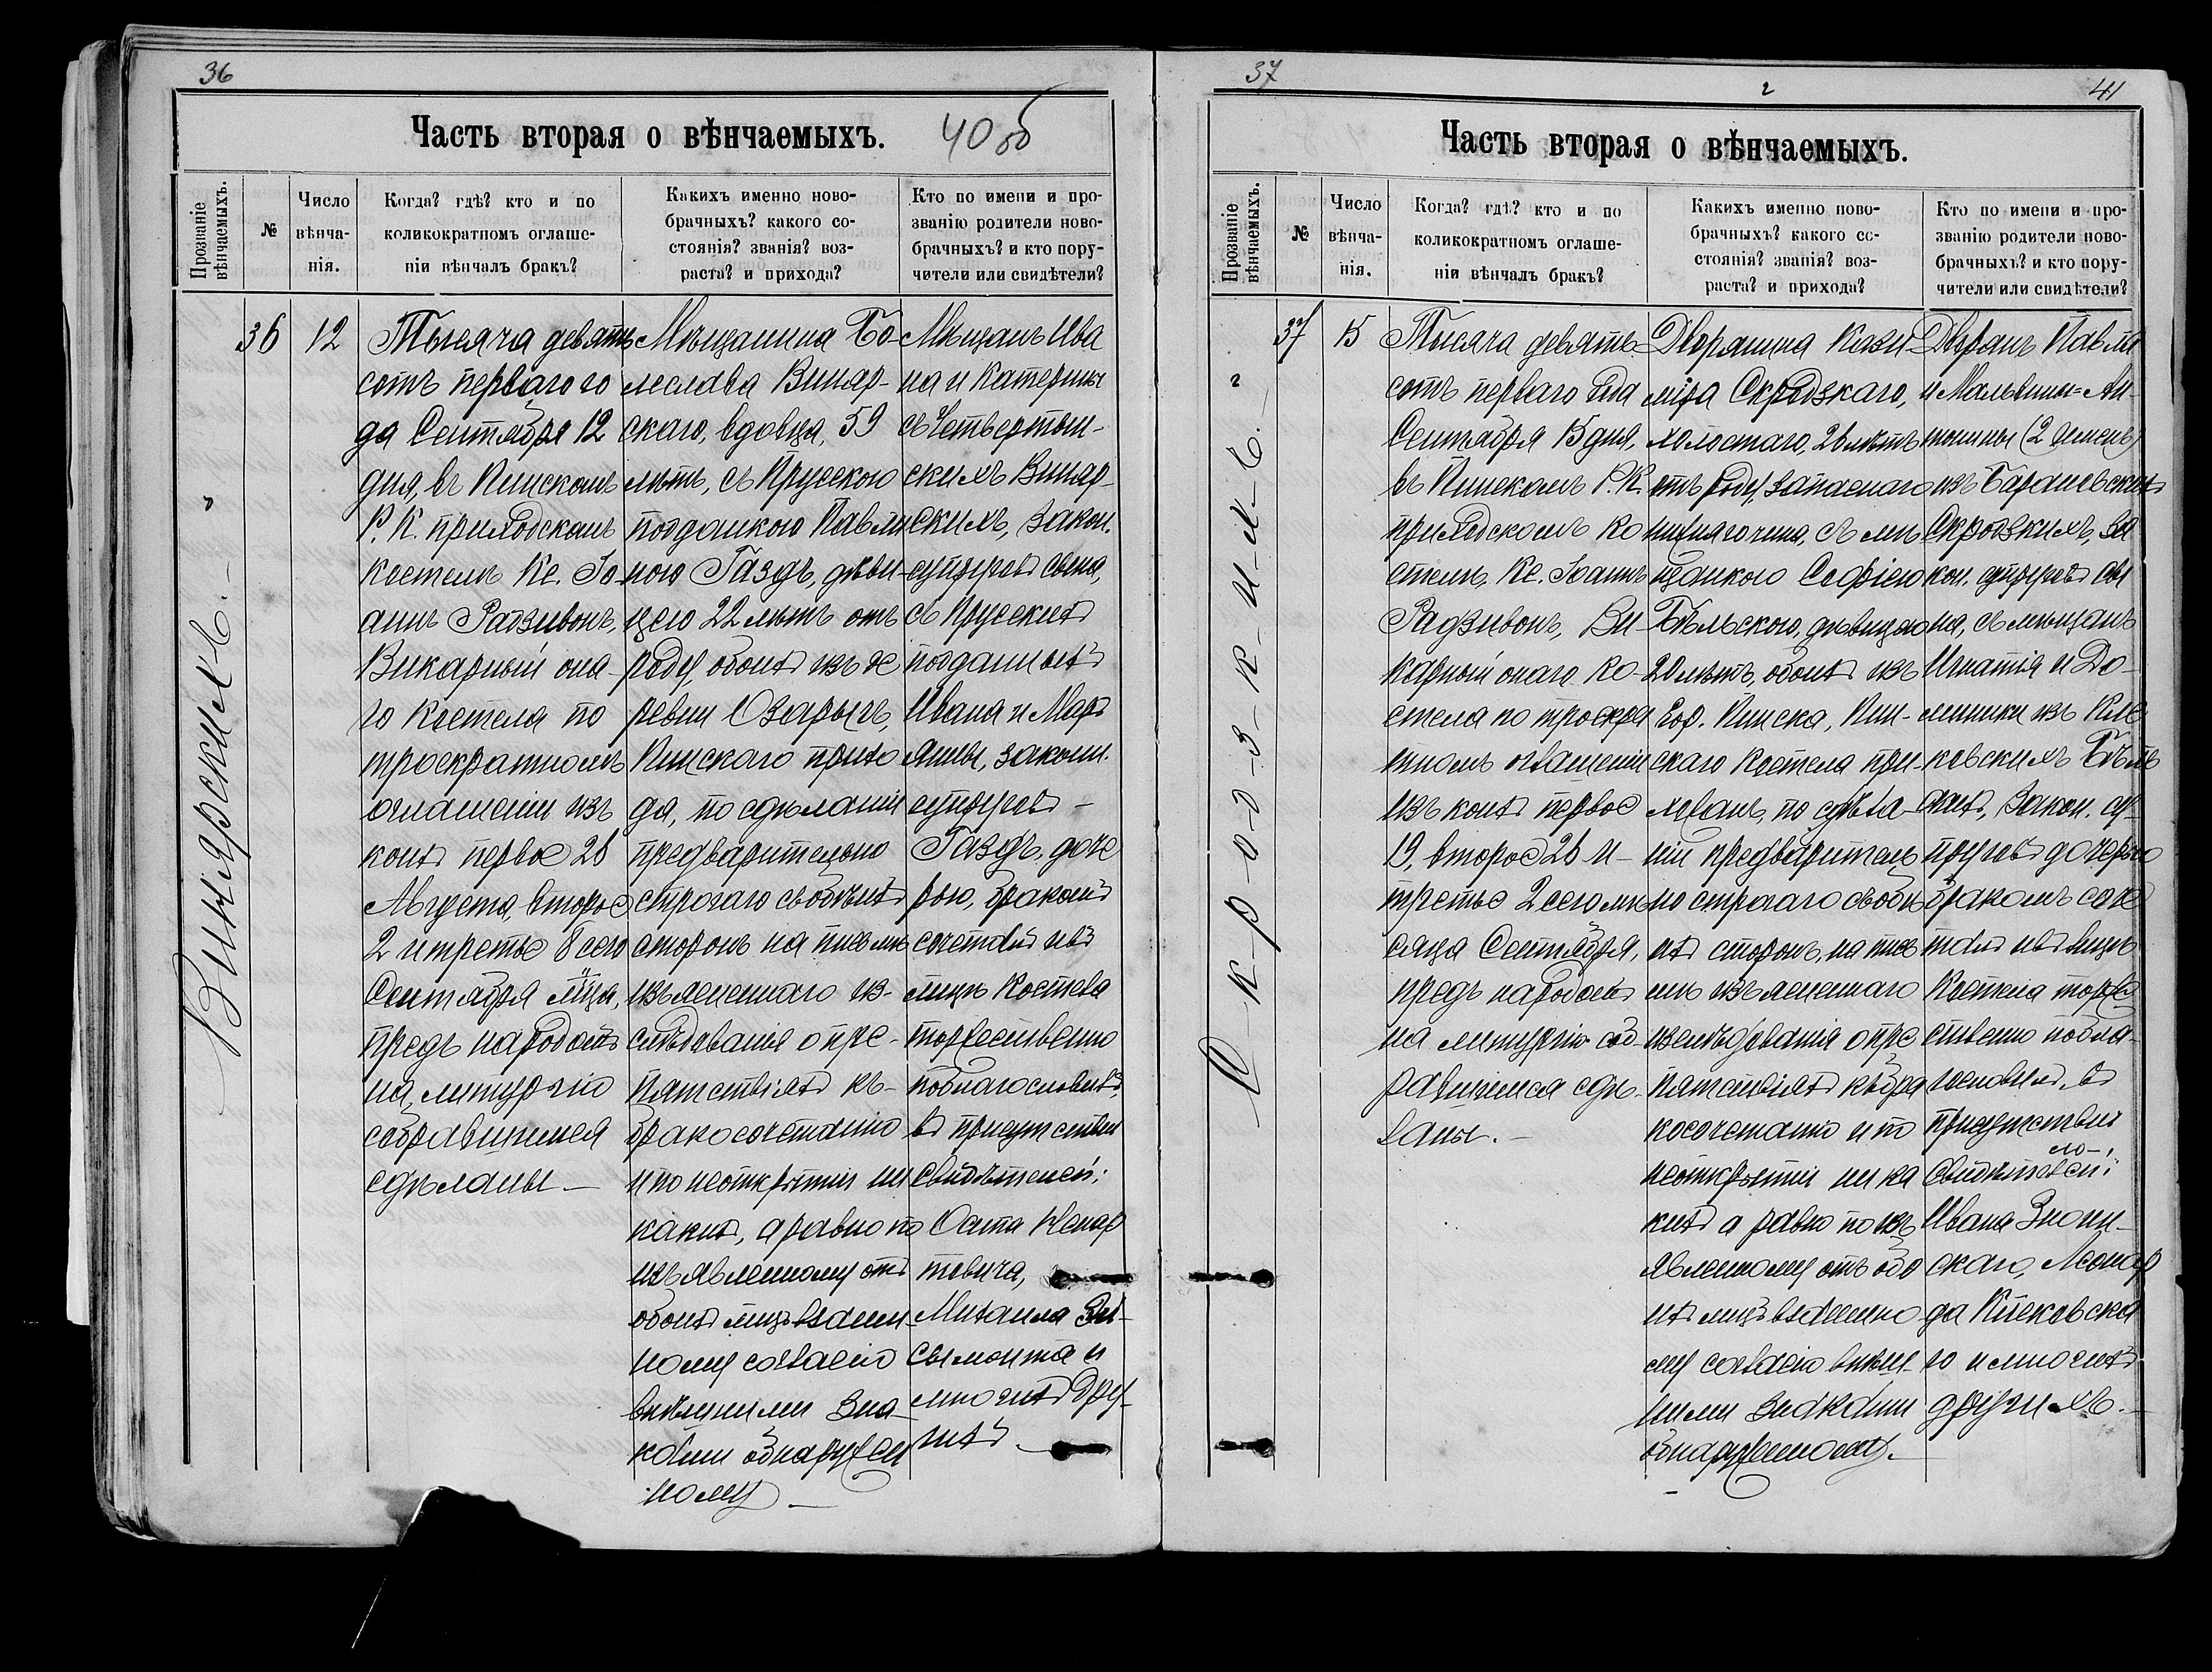 36
Часть вторая о вѣнчаемыхъ. 40 об
Прозваніе вѣнчаемыхъ.
№
Число
вѣнча-
нія.
Когда? гдѣ? кто и по
коликократномъ оглаше-
ніи вѣнчалъ бракъ?
Какихъ именно ново-
брачныхъ? какого со-
стоянія? званія? воз-
раста? и прихода?
Кто по имени и про-
званію родители ново-
брачныхъ? и кто пору-
чители или свидѣтели?
Винярскихъ.-
36
12
Тысяча девять
сотъ перваго го
да Сентября 12
дня, въ Пинскомъ
Р. К. приходскомъ
костелѣ Кс. Іо-
аннъ Радзивонъ,
Викарный она-
го костела по
троекратномъ
оглашеніи изъ
коихъ первое 26
Августа, второе
2 и третье 8 сего
Сентября м̃ца,
предъ народомъ
на литургію
собравшимся
сдѣланы –
Мѣщанина Бо-
леслава Виняр-
скаго, вдовца, 59
лѣтъ, съ Прусскою
подданкою Павли
ною Газдъ, дѣви-
цею 22 лѣтъ отъ
роду, обоихъ изъ де
ревни Озаричъ,
Пинскаго прихо
да, по сдѣланіи
предварительно
строгаго съ обѣихъ
сторонъ на письмѣ
изъясненнаго из-
слѣдованія о пре-
пятствіяхъ къ-
бракосочетанію
и по неоткрытіи ни
какихъ, а равно по
изъявленному отъ
обоихъ лицъ взаим-
ному согласію
внѣшними зна-
ками обнаружен
ному –
Мѣщанъ Ива
на и Катерины
съ Четвертын-
скихъ Виняр-
скихъ, закон.
супруговъ сына,
съ Прусскихъ
подданныхъ
Ивана и Марі
анны, законн.
супруговъ –
Газдъ, доче
рью, бракомъ
сочеталъ и въ
лицѣ Костела
торжественно
поблагословилъ,
въ присутствіи
свидѣтелей:
Осипа
товича,
Михаила
и
многихъ дру-
гихъ –
37
41
Часть вторая о вѣнчаемыхъ.
Прозваніе вѣнчаемыхъ.
№
Число
вѣнча-
нія.
Когда? гдѣ? кто и по
коликократномъ оглаше-
ніи вѣнчалъ бракъ?
Какихъ именно ново-
брачныхъ? какого со-
стоянія? званія? воз-
раста? и прихода?
Кто по имени и про-
званію родители ново-
брачныхъ? и кто пору-
чители или свидѣтели?
С-к-р-о-д-з-к-и-х-ъ.-
37
15
Тысяча девять
сотъ перваго года
Сентября 15 дня,
въ Пинскомъ Р. К.
приходскомъ ко
стелѣ. Кс. Іоаннъ
Радзивонъ, Ви
карный онаго ко-
стела по троекра
тномъ оглашеніи
изъ коихъ первое
19, второе 26 и-
третье 2 сего мѣ
сяца Сентября,
предъ народомъ
на литургію соб-
равшимся сдѣ-
ланы. –
Дворянина Кази
міра Скродзкаго,
холостаго, 26 лѣтъ
отъ роду, запаснаго
нижняго чина, съ мѣ
щанкою Софіею
Бѣльскою, дѣвицею
20 лѣтъ, обоихъ изъ
гор. Пинска, Пин-
скаго костела при-
хожанъ, по сдѣла-
ніи предваритель
но строгаго съ обѣ
ихъ сторонъ, на пись
мѣ изъясненнаго
изслѣдованія о пре
пятствіяхъ къ бра
косочетанію и по
неоткрытіи ни ка
кихъ а равно по изъ
явленному отъ обо
ихъ лицъ взаимно
му согласію внѣш-
ними знаками
обнаруженному. –
Дворянъ Павла
и Мальвины-Ан-
тонины (2 именъ)
изъ Барановскихъ
Скродзкихъ, за
кон. супруговъ сы
на, съ мѣщанъ
Игнатія и До-
миники изъ
Бѣль
скихъ, закон. су-
пруговъ дочерью
бракомъ соче
талъ и въ лицѣ
Костела торже
ственно побла-
гословилъ, въ
присутствіи
свидѣтелей:
Ивана
скаго, Леонар
да
го и многихъ
другихъ. –